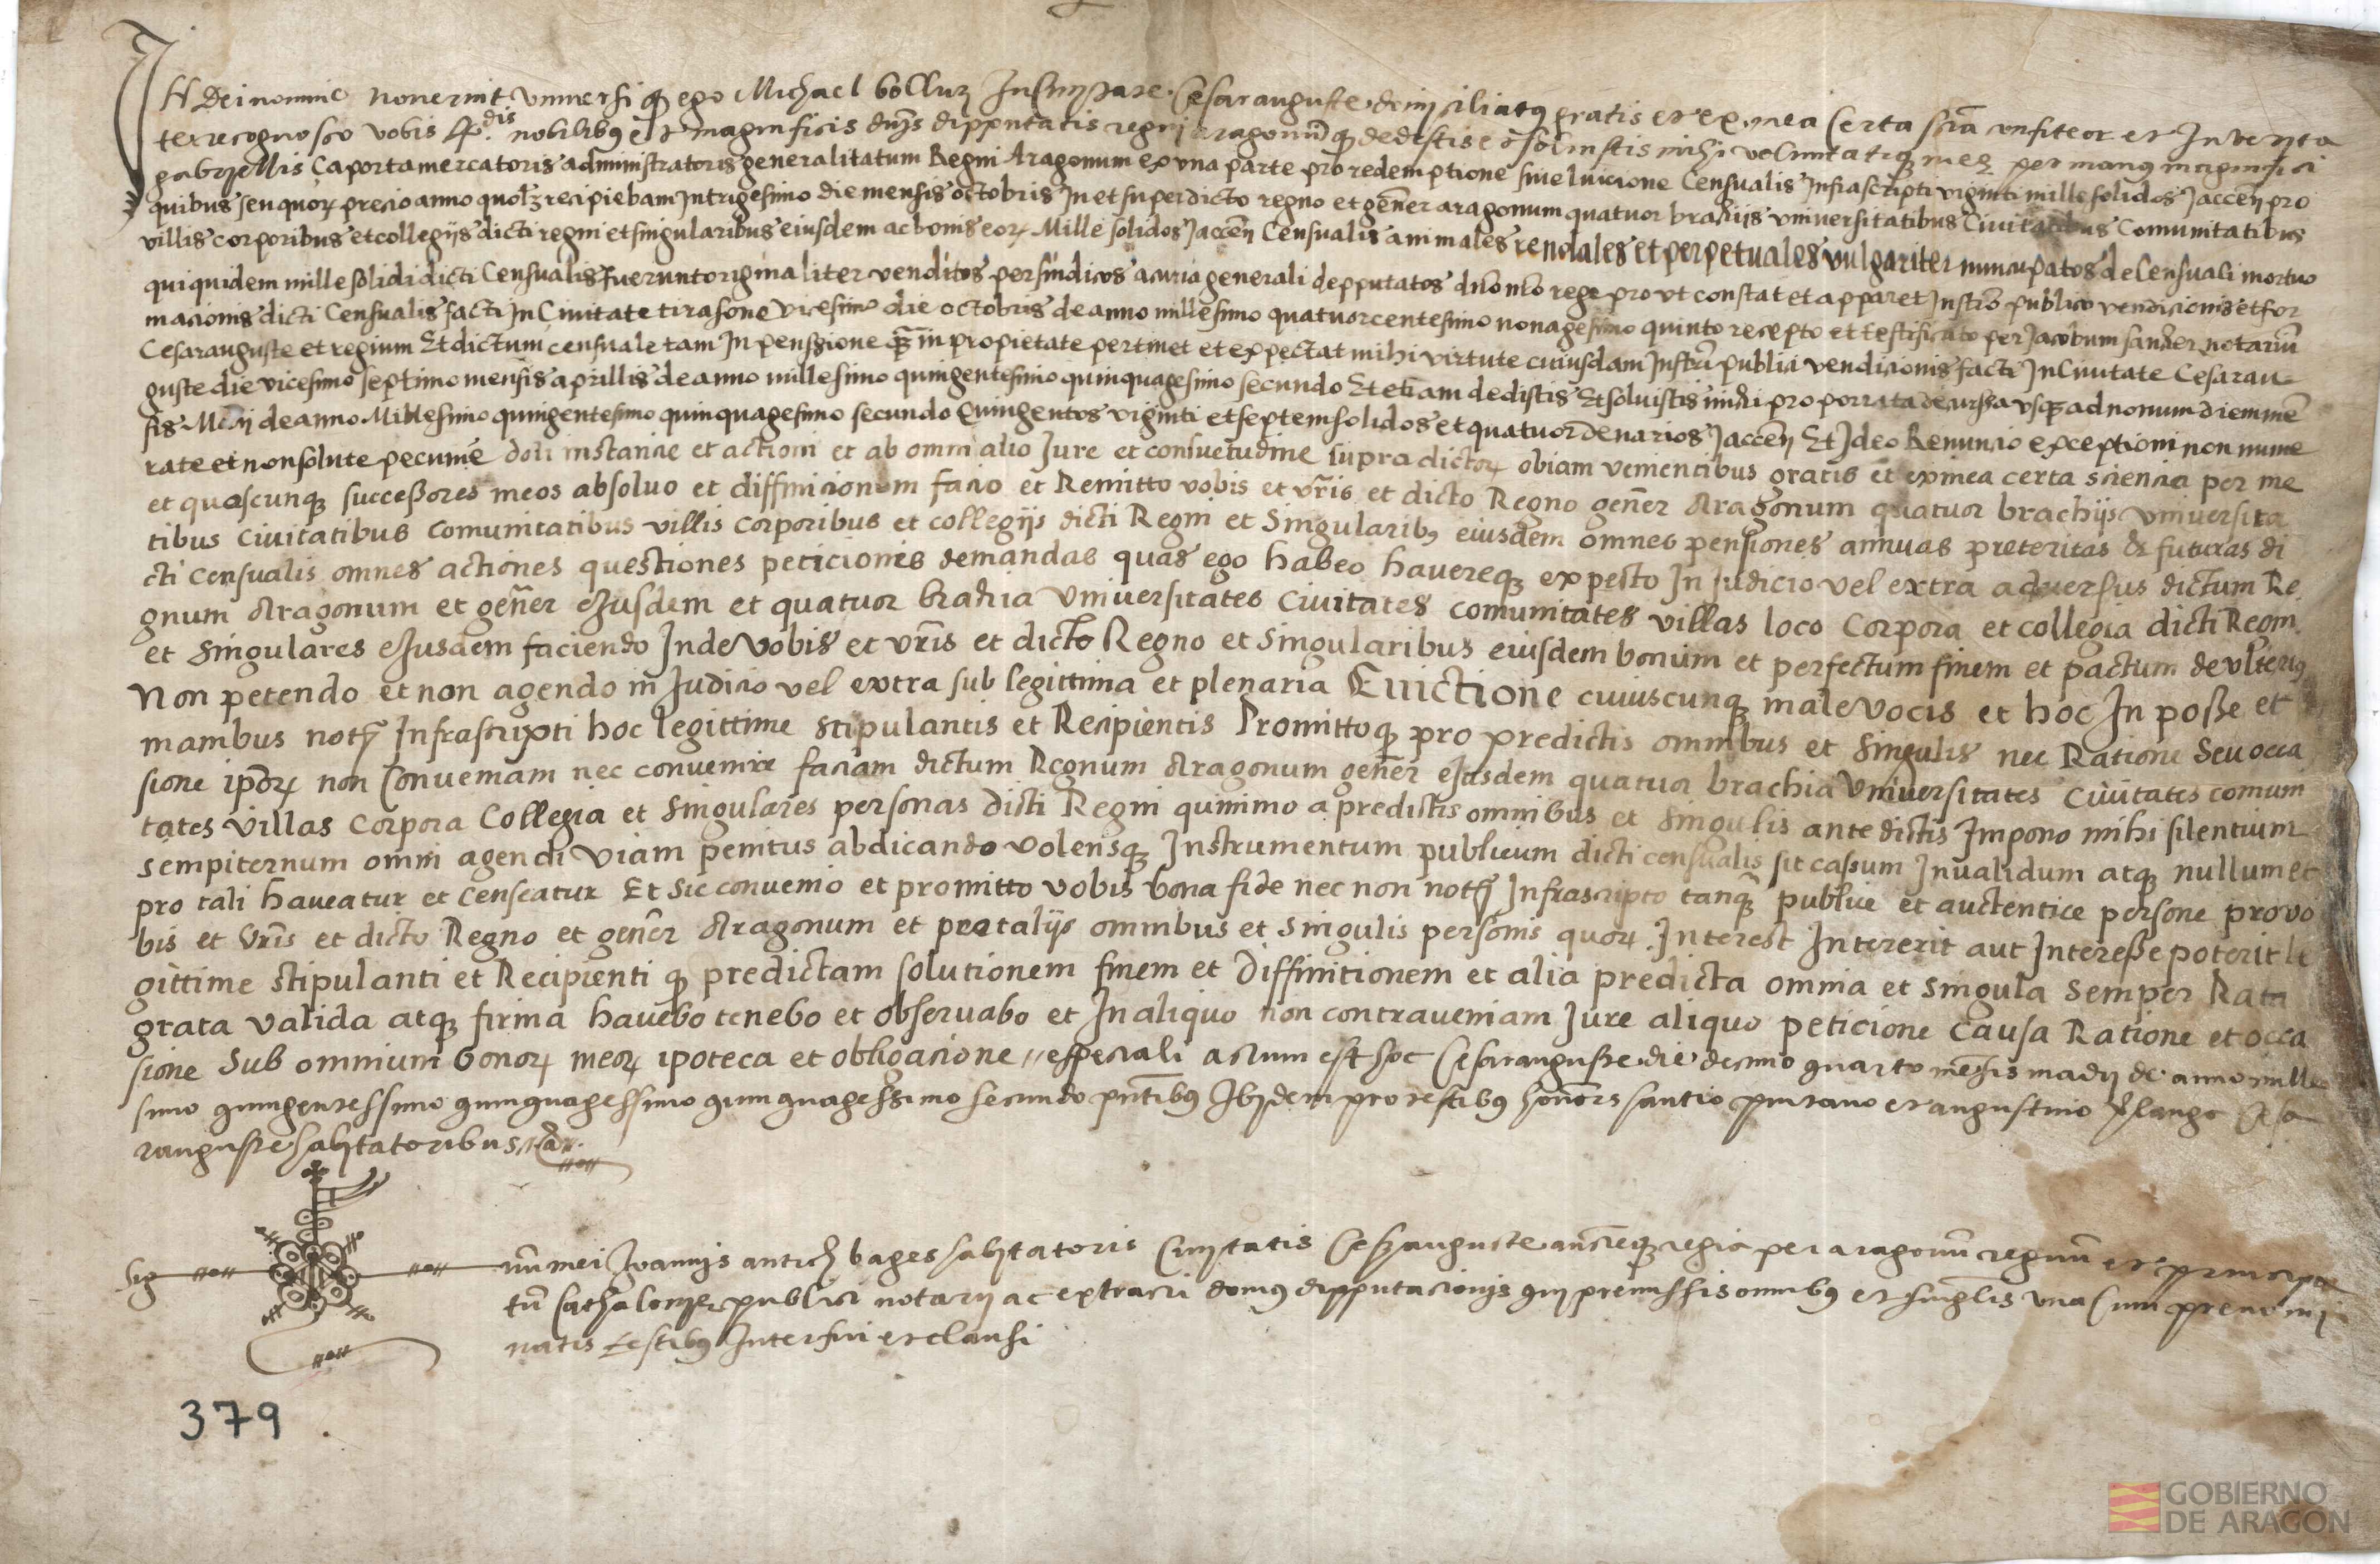 In Dei nomine noverint universi q ego Michael bolluz Inciujtate Cesarauguste domiciliatus gratis et ex mea Certa scia confiteor et In verita
te recognosco vobis R.dis nobilibus et magnificis dnis dipputatis regni aragonum q dedistis et solvistis mihi voluntatiq mee per manus magnifici
gabrjellis Caporta mercatoris administratoris generalitatum Regni Aragonum ex una parte pro redemptione sive luicione Censualis Infrascripti viginti mille solidos Jaccen pro
quibus seu quor precio anno quolz recipiebam In trigesimo die mensis octobris In et super dicto regno et gener aragonum quatuor brachijs universitatibus Civitatibus Comunitatibus
villis corporibus et collegijs dicti regni et singularibus eiusdem ac bonis eor Mille solidos Jaccen Censualis animales rendales et perpetuales vulgariter nuncupatos de Censuali mortuo
qui quidem mille solidi dicti Censualis fuerunt originaliter venditos per sindicos a curia generali depputatos dno nro rege prout constat et apparet Instro publico vendicionis et for
macionis dicti Censualis facti In Civitate tirasone vicesimo die octobris de anno millesimo quatuorcentesimo nonagesimo quinto recepto et testificato per Jacobum sanher notarium
Cesarauguste et regium Et dictum censuale tam In penssione qm in propietate pertinet et expectat mihi virtute cuiusdam Instri publici vendicionis facti In Civitate Cesarau
guste die vicesimo septimo mensis aprillis de anno millesimo quingentesimo quinquagesimo secundo Et etiam dedistis Et solvistis michi pro porrata decurssa usq ad nonum diem men
sis Maij de anno Millesimo quingentesimo quinquagesimo secundo Quingentos viginti et septem solidos et quatuor denarios Jaccen Et Ideo Renuncio exceptioni non nume
rate et non solute pecunie doli instancie et actioni et ab omni alio Jure et consuetudine supra dictor obiam venientibus gratis et ex mea certa sciencia per me
et quoscunq successores meos absoluo et diffinicionem facio et Remitto vobis et vris et dicto Regno gener Aragonum quatuor brachijs universita
tibus Civitatibus comunitatibus villis corporibus et collegijs dicti Regni et Singularibus eiusdem omnes pensiones annuas preteritas & futuras di
cti Censualis omnes actiones questiones peticiones demandas quas ego habeo havereq expecto In Judicio vel extra adversus dictum Re
gnum Aragonum et gener eJusdem et quatuor brachia Universitates Civitates comunitates villas loco Corpora et collegia dicti Regni
et Singulares eJusdem faciendo Inde vobis et vris et dicto Regno et Singularibus eiusdem bonum et perfectum finem et pactum de ulterius
Non petendo et non agendo in Judicio vel extra sub legittima et plenaria Evictione cuiuscunq male vocis et hoc In posse et
manibus notrj Infrascripti hoc legittime stipulantis et Recipientis Promittoq pro predictis omnibus et Singulis nec Ratione Seu occa
sione ipsor non Conveniam nec convenire faciam dictum Regnum Aragonum gener eJusdem quatuor brachia Universitates Civitates comuni
tates Villas Corpora Collegia et Singulares personas dicti Regni quinimo a predictis omnibus et Singulis ante dictis Impono mihi silentium
sempiternum omni agendi viam penitus abdicando volensq Instrumentum publicum dicti censualis sit cassum Invalidum atq nullum et
pro tali haveatur et Censeatur Et Sic convenio et promitto vobis bona fide nec non notrj Infrascripto tanq publice et auctentice persone pro vo
bis et vris et dicto Regno et gener Aragonum et pro talijs omnibus et Singulis personis quor Interest Intererit aut Interesse poterit le
gittime stipulanti et Recipienti q predictam solutionem finem et Diffinitionem et alia predicta omnia et Singula Semper Rata
grata valida atq firma havebo tenebo et observabo et In aliquo non contraveniam Jure aliquo peticione Causa Ratione et occa
sione Sub omnium bonor meor ipoteca et obligacione especiali actum est hoc Cesarauguste die decimo quarto mensis madij de anno mille
simo quingentessimo quinquagessimo secundo pntibus Ibjdem pro testibus honors santio et augustino Cesa
rauguste habitatoribus
Sig num mei Joannis antich bages habitatoris Civjtatis Cesarauguste aucteq regia per aragonum regnum et principa
tum Cathalonje publici notarij ac extracti domus dipputacionjs qui premissis omnibus et singlis una Cum prenomi
natis testibus Interfui et clausi
379
GOBIERNO
DE ARAGON